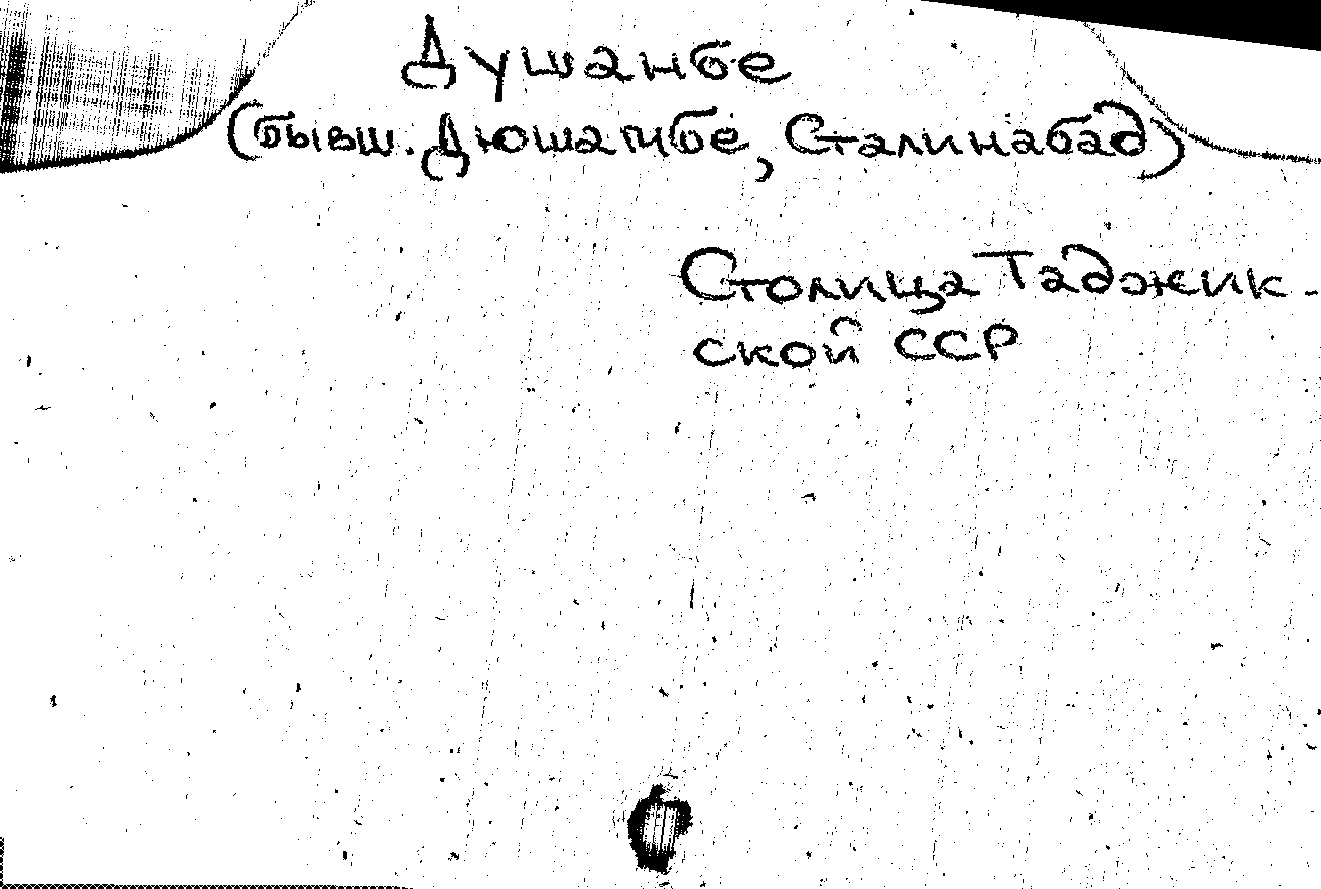 Душанбе
(бывш. Дюшамбе, Сталинабад)
Столица Таджик-
ской ССР